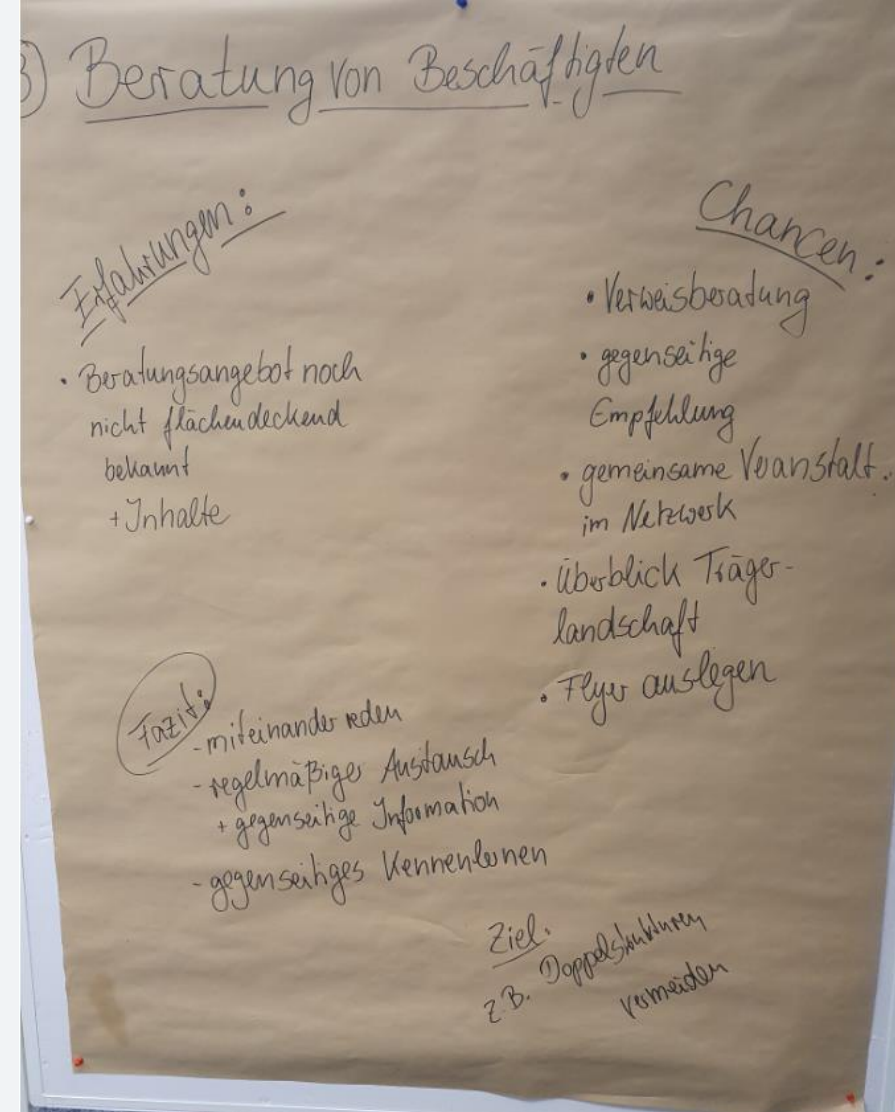 3) Beratung von Beschäftigten
Erfahrungen:
• Beratungsangebot noch
nicht flächendeckend
bekannt
+ Inhalte
Chancen:
• Verweisberatung
• gegenseitige
Empfehlung
• gemeinsame Veranstalt.
im Netzwerk
• Überblick Träger-
landschaft
• Flyer auslegen
Fazit:
- miteinander reden
- regelmäßiger Austausch
+ gegenseitige Information
- gegenseitiges Kennenlernen
Ziel:
z.B. Doppelstrukturen
vermeiden